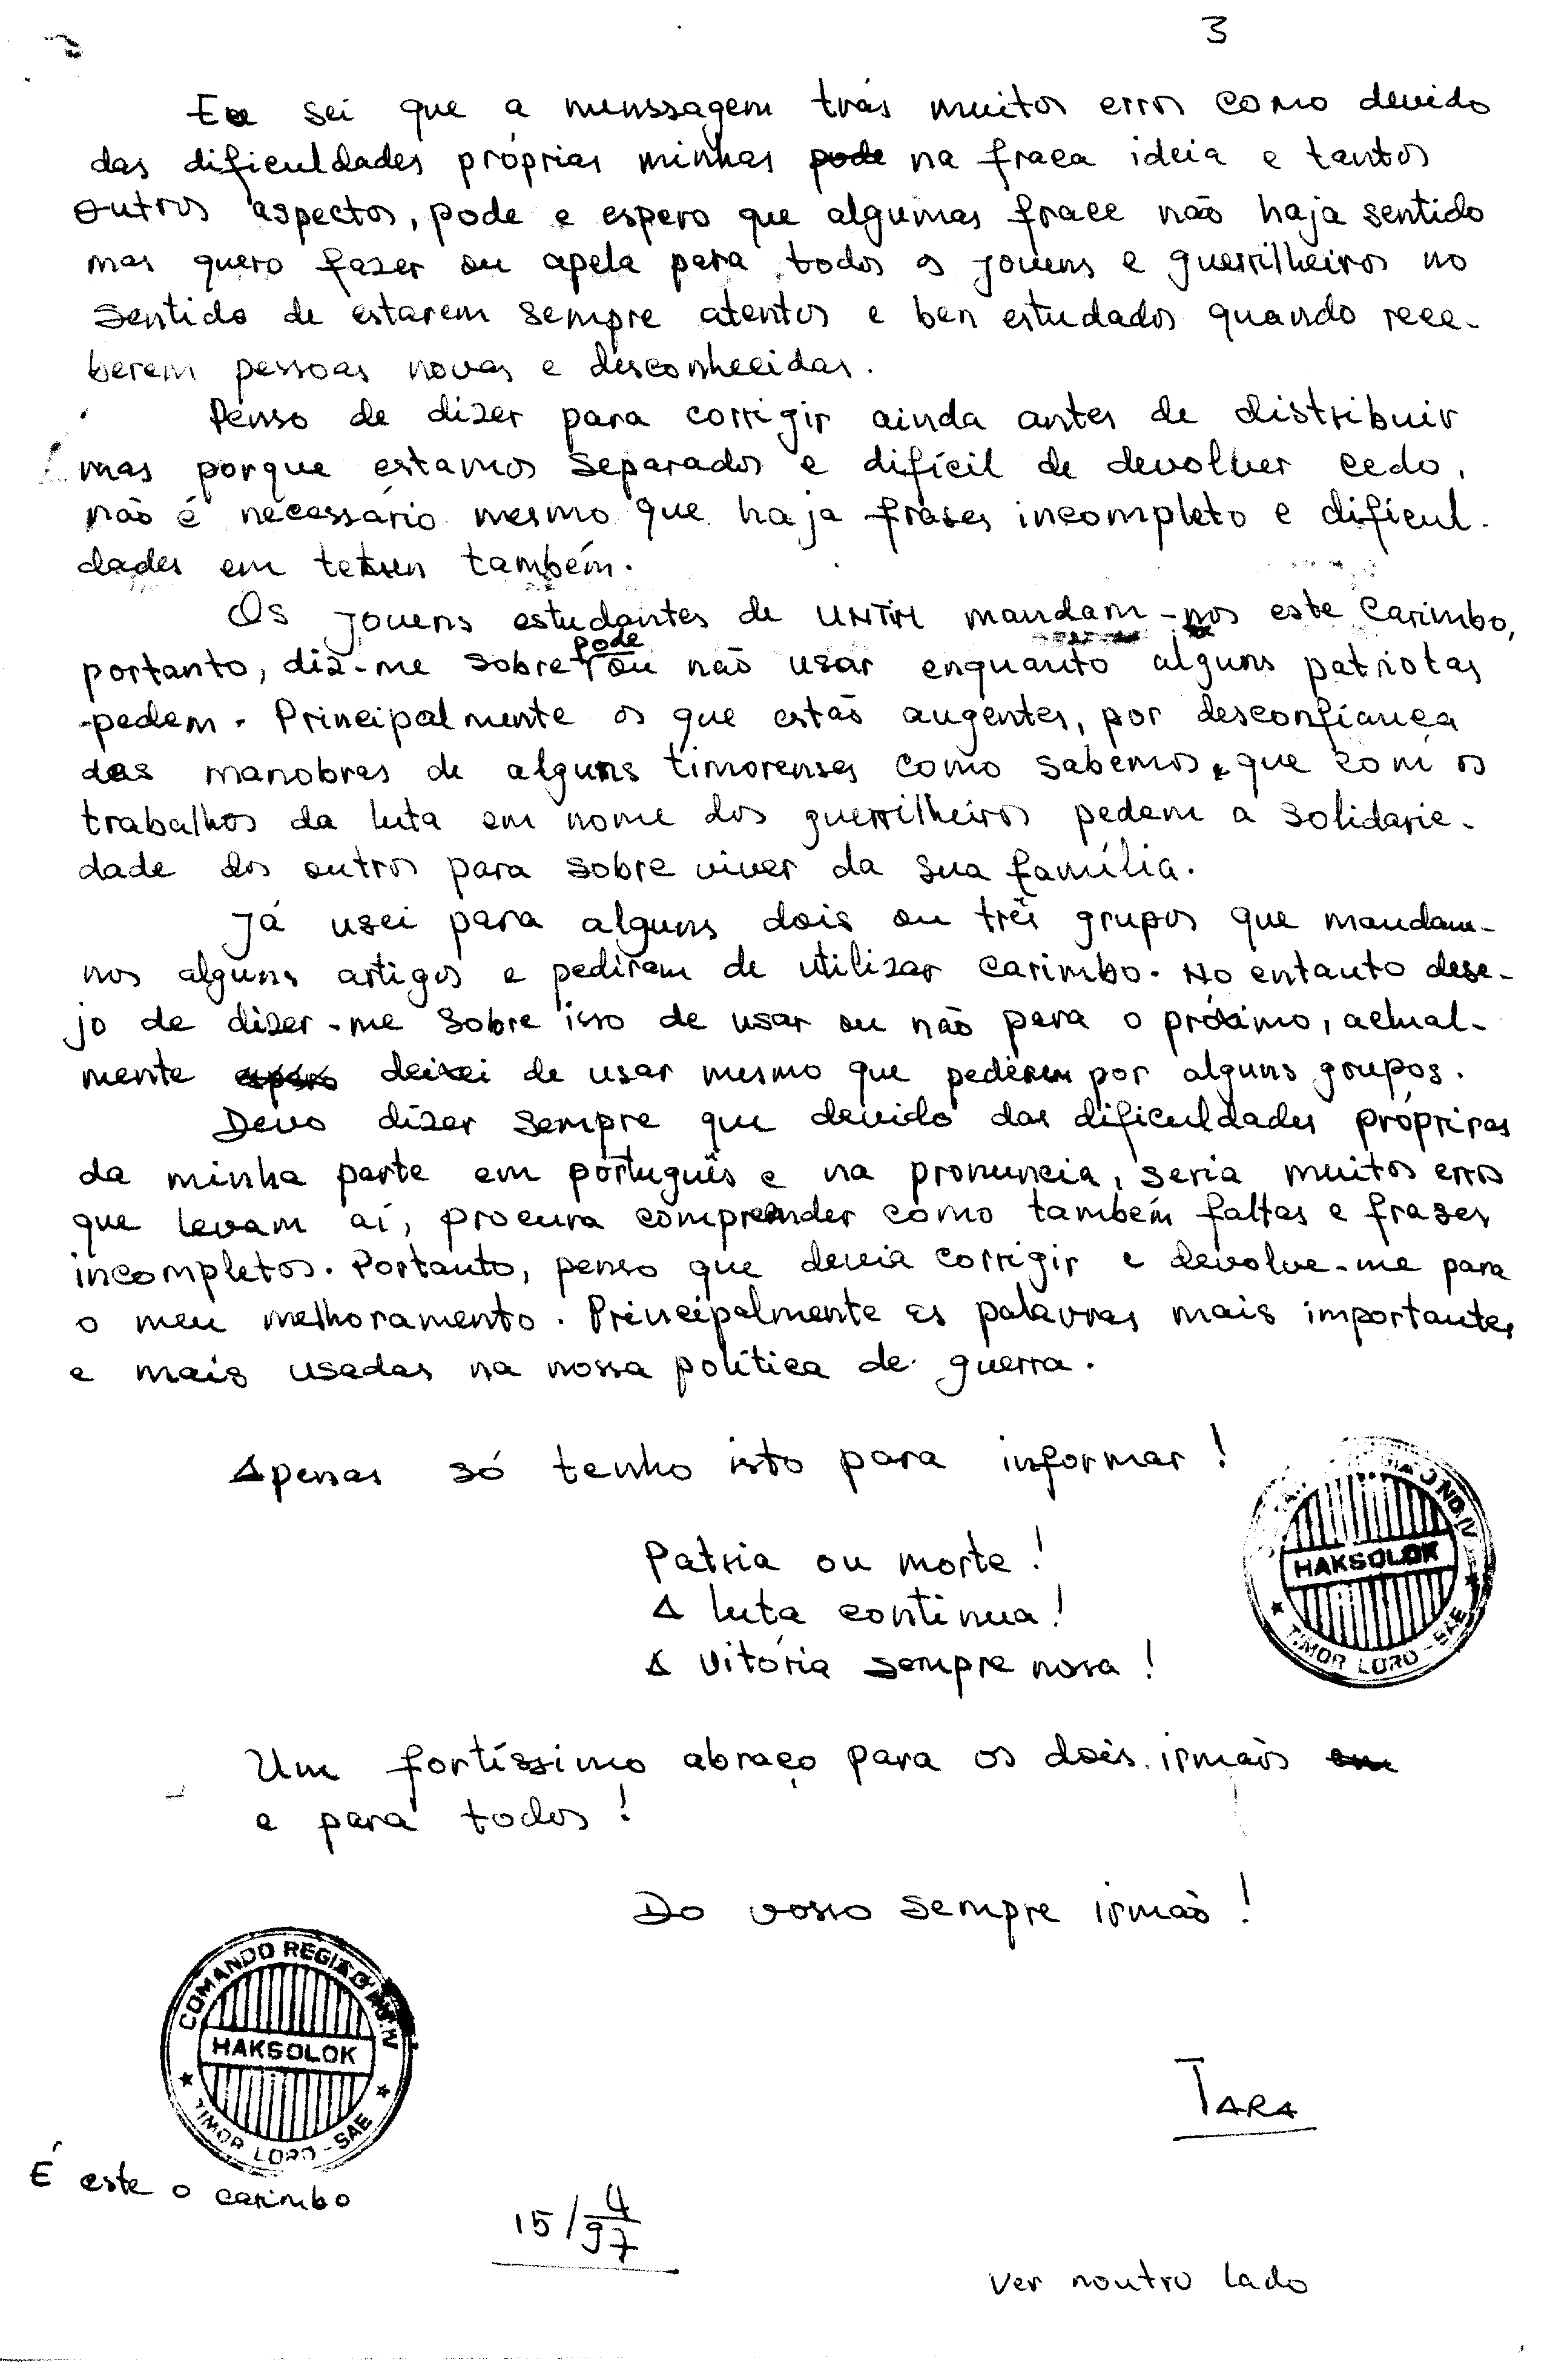 3
Eu sei que a menssagem trás muitos erros como devido
das dificuldades próprias minhas pode na fraca ideia e tantos
outros aspectos, pode e espero que algumas frace não haja sentido
mas quero fazer ou apela para todos os jovens e guerrilheiros no
sentido de estarem sempre atentos e ben estudados quando rece-
berem pessoas novas e desconhecidas.
Penso de dizer para corrigir ainda antes de distribuir
mas porque estamos separados e difícil de devolver cedo,
não é necessário mesmo que haja frases incompleto e dificul-
dades em tetun também.
Os jovens estudantes de UNTIM mandam-nos este Carimbo,
portanto, diz-me sobre pode ou não usar enquanto alguns patriotas
pedem. Principalmente os que estão augentes, por desconfiança
das manobras de alguns timorenses como sabemos, que com os
trabalhos da luta em nome dos guerrilheiros pedem a solidarie-
dade dos outros para sobre viver da sua família.
Já usei para alguns dois ou três grupos que mandam-
nos alguns artigos e pediram de utilizar carimbo. No entanto dese-
jo de dizer-me sobre isso de usar ou não para o próximo, actual-
mente deixei de usar mesmo que pederem por alguns groupos.
Devo dizer sempre que devido das dificuldades própriras
da minha parte em português e na pronuncia, seria muitos erros
que levam aí, procura comprender como também faltas e frases
incompletos. Portanto, penso que devia corrigir e devolve-me para
o meu melhoramento. Principalmente as palavras mais importantes
e mais usadas na nossa política de guerra.
Apenas só tenho isto para informar!
Patria ou morte!
A luta continua!
A vitória sempre nossa!
HAKSOLOK
TIMOR LORO-SAE
Um fortíssimo abraço para os dois irmãos em
e para todos!
Do vosso sempre irmão!
COMANDO REGIÃO NO.IV
HAKSOLOK
TIMOR LORO-SAE
TARA
É este o carimbo
15/4/97
Ver noutro lado